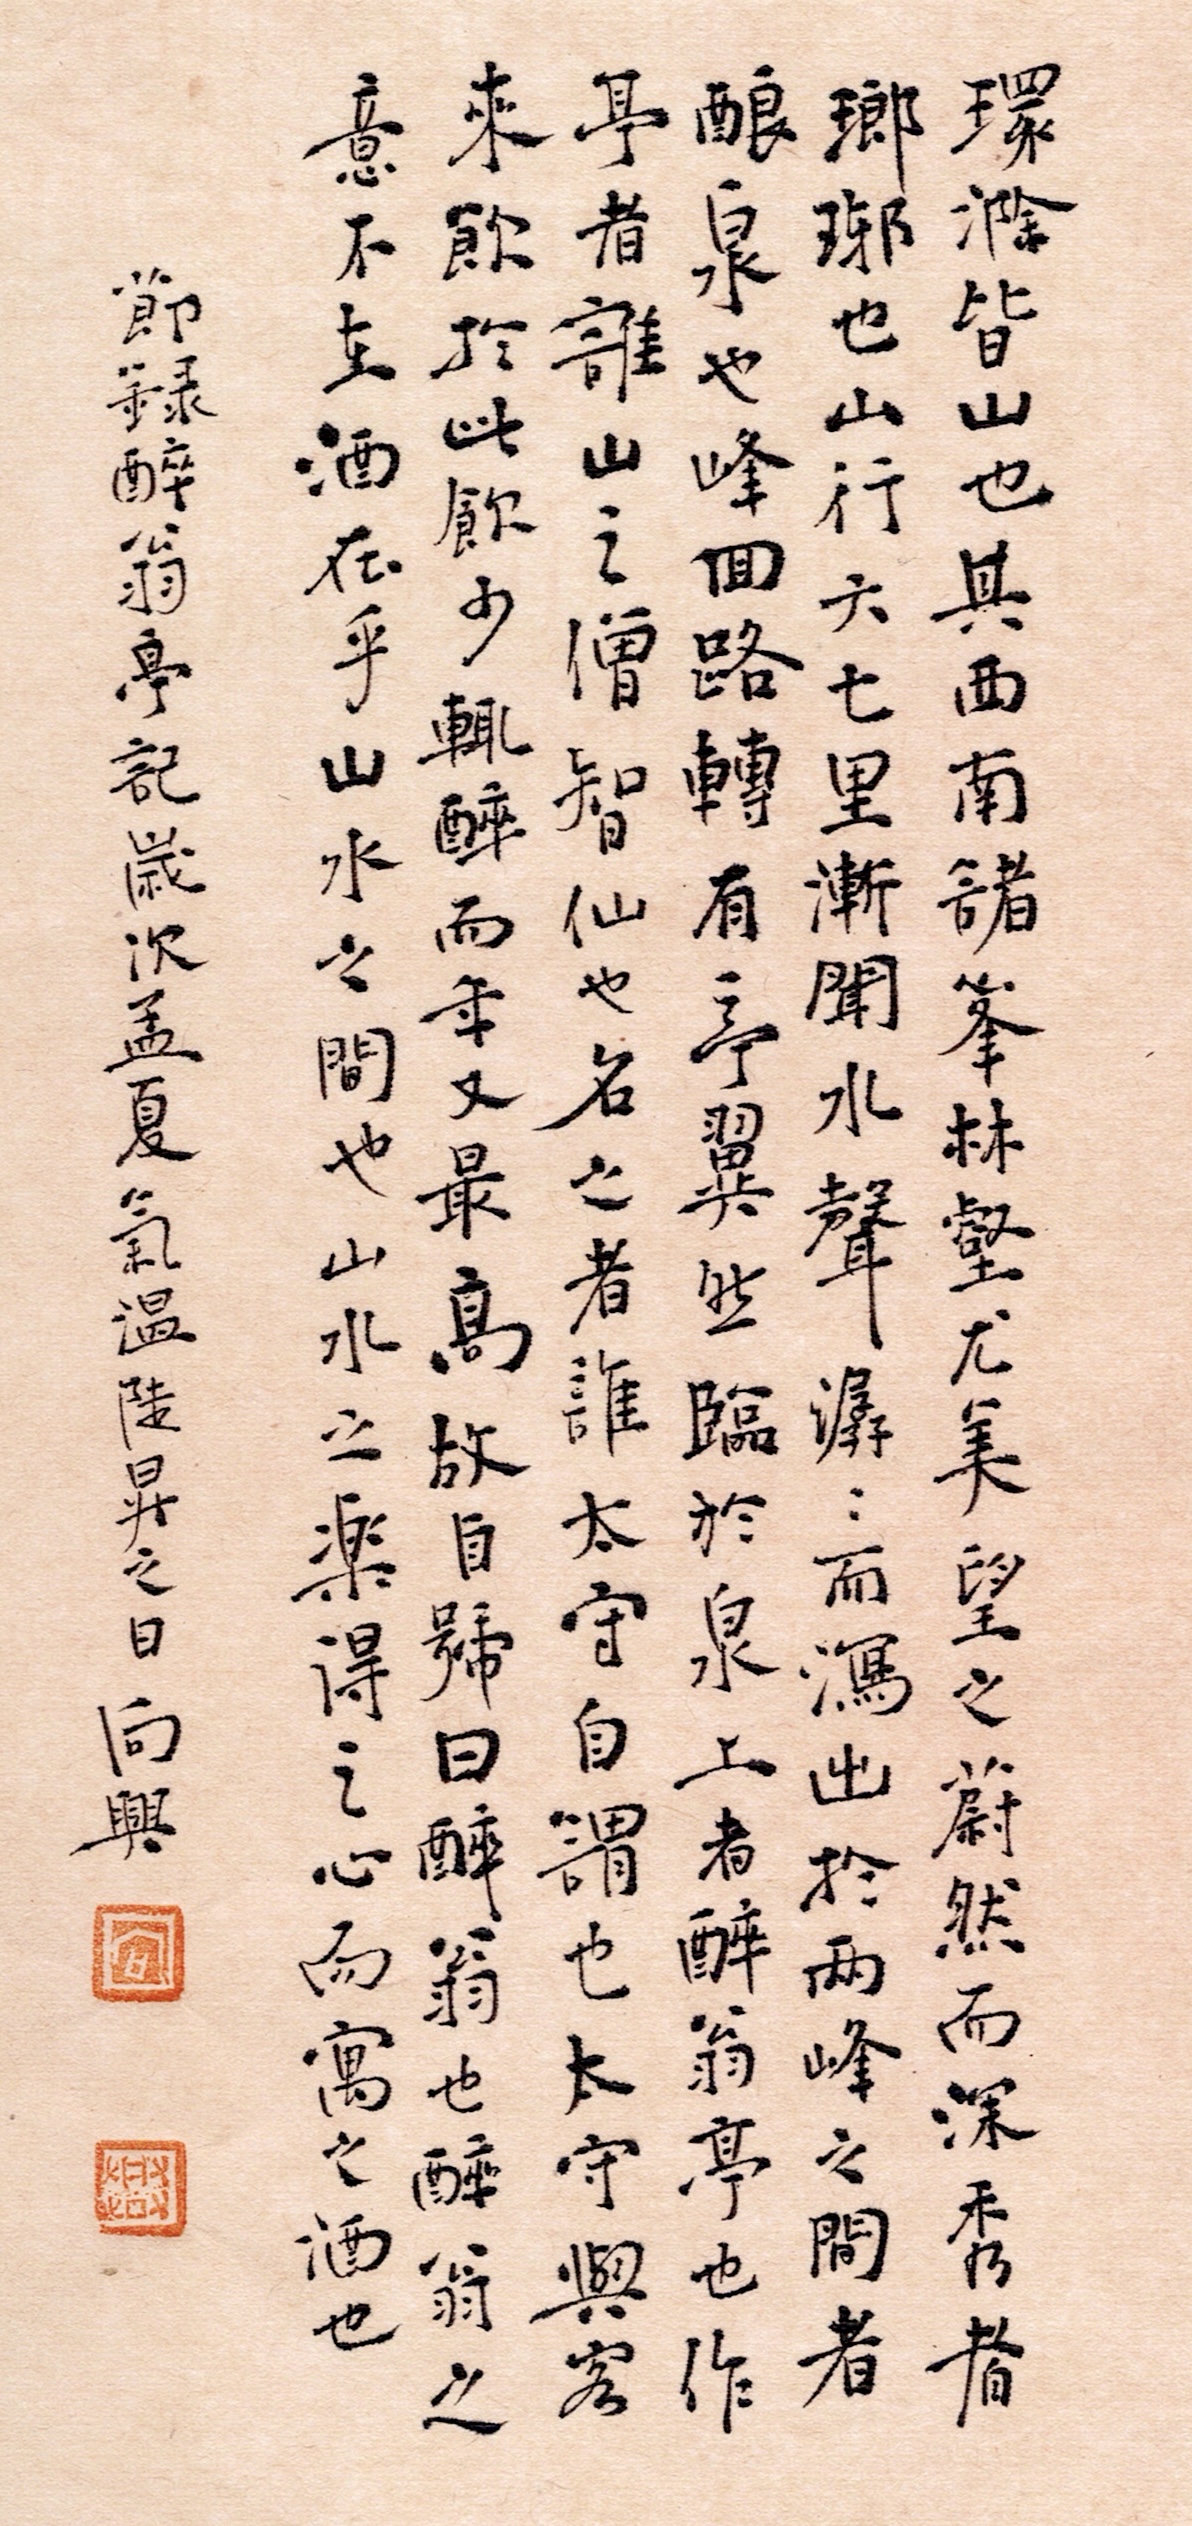 環滁皆山也其西南諸峯林壑尤美望之蔚然而深秀者
瑯琊也山行六七里漸聞水聲潺〻而瀉出於兩峰之間者
釀泉也峰回路轉有亭翼然臨於泉上者醉翁亭也作
亭者誰山之僧智仙也名之者誰太守自謂也太守與客
來飲於此飲少輒醉而年又最高故自號曰醉翁也醉翁之
意不在酒在乎山水之間也山水之樂得之心而寓之酒也
節錄醉翁亭記歲次孟夏氣溫陡昇之日 向興